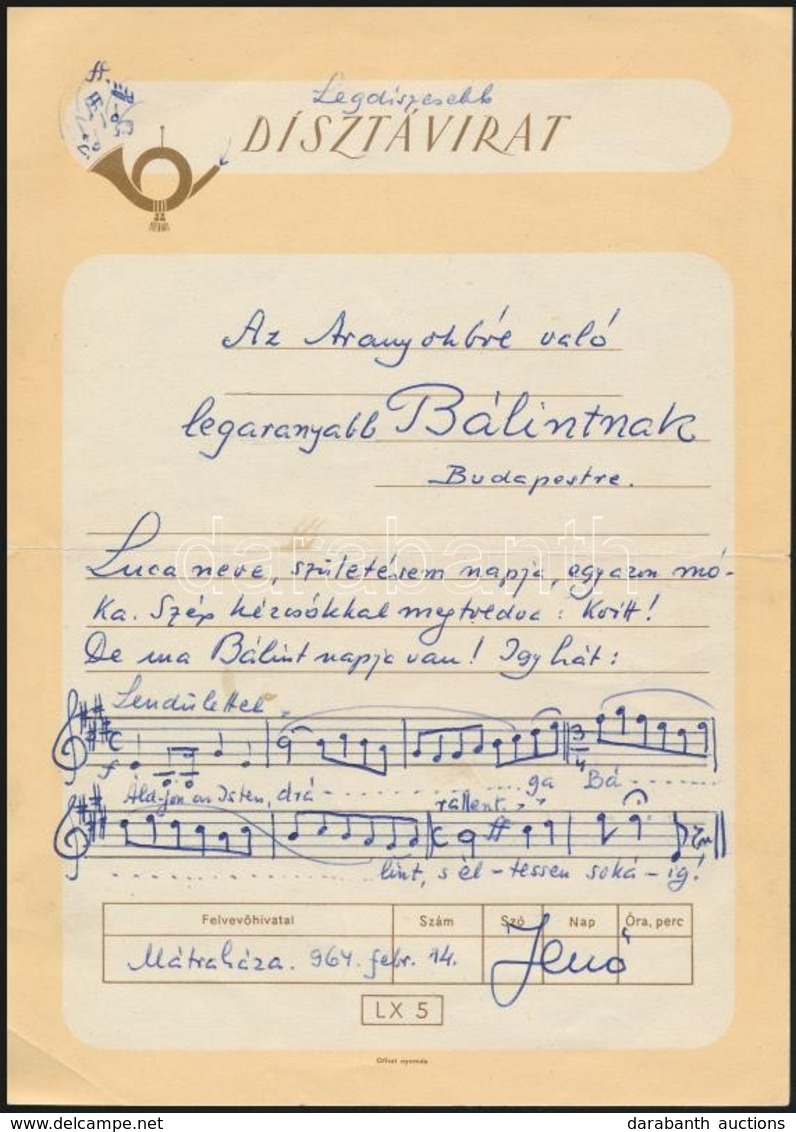 ff.
Legdíszesebb
DÍSZTÁVIRAT
Az Aranyökbré való
legaranyabb Bálintnak
Budapestre.
darabanth
Luca neve, születésem napja, egyazon mó-
ka. Szép kézcsókkal megtoldva: Kvitt!
De ma Bálint napja van! Igy hát:
Lendülettel
f
Áld-jon an Isten, drá - - - ga Bá - - -
rallent.
ff
- - - lint, s él-tessen soká-ig!
Felvevőhivatal Szám Szó Nap Óra, perc
Mátraháza. 964. febr. 14. Jenő
LX 5
Offset nyomás
darabanth auctions